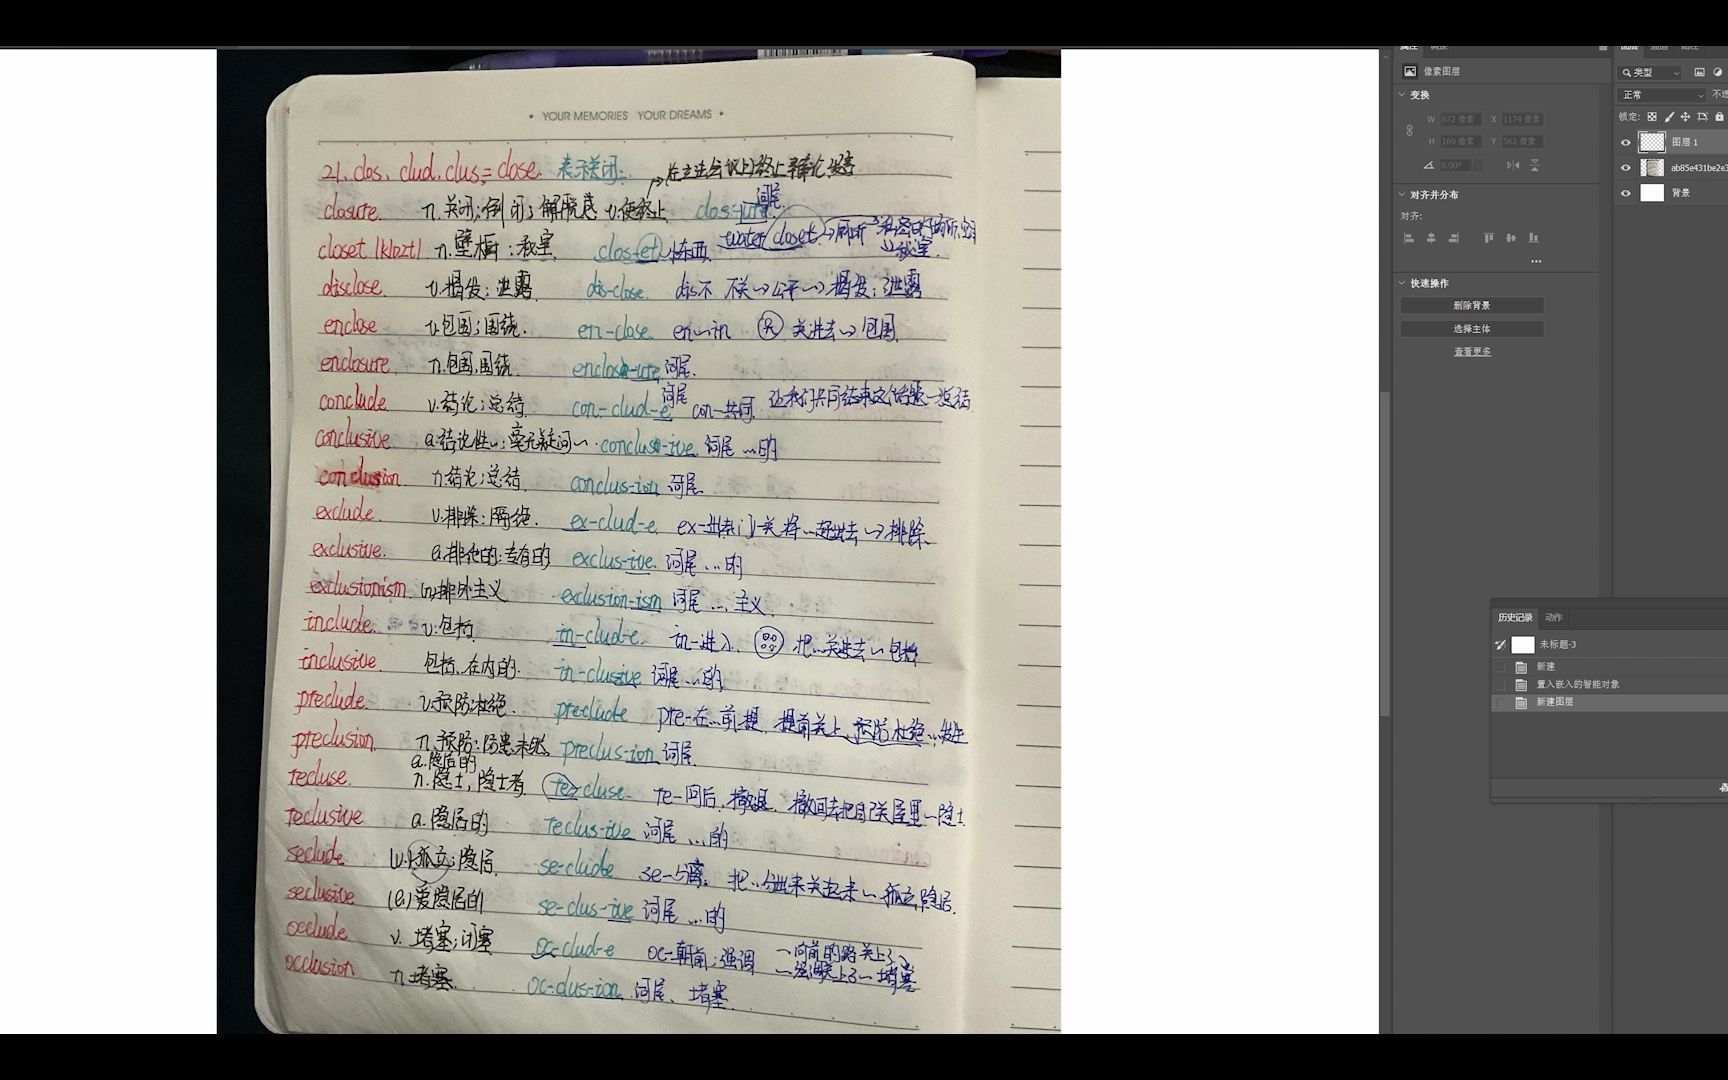 • YOUR MEMORIES YOUR DREAMS •
21. clos, clud, clus = close. 表示关闭.
在立法会议上终止辩论
closure. n.关闭;倒闭;解脱感 v.使终止 clos-ure 词尾.
closet |klɒzt| n.壁橱;秘室 clos-et 小东西 water closet 厕所 秘室.
disclose. v.揭发;泄露 dis-close. dis不 不关→公开→揭发;泄露
enclose v.包围;围绕. en-close. en~in 关进去→包围.
enclosure. n.包围,围绕 enclos-ure 词尾.
conclude. v.结论;总结 con-clud-e 词尾 con-共同. 让我们共同结束这个话题
conclusive a.结论性~;毫无疑问~. conclus-ive 词尾 …的
conclusion n.结论;总结 conclus-ion 词尾.
exclude. v.排除;隔绝. ex-clud-e ex-出来 关 将…赶出去→排除.
exclusive. a.排他的;专有的 exclus-ive. 词尾 …的
exclusionism. (n)排外主义 exclusion-ism 词尾 …主义
include. v.包括 in-clud-e. in-进入 把…关进去~包括
inclusive. 包括、在内的. in-clusive 词尾…的
preclude. v.预防;杜绝. preclude pre-在…前,提 提前关上,预防,杜绝…发生
preclusion. n.预防;防患未然. preclus-ion 词尾.
recluse. a.隐居的
n.隐士,隐士者 re-cluse. re-回后,撤退. 撤回去把自己关屋里~隐士.
reclusive a.隐居的 reclus-ive 词尾 …的
seclude (v.)孤立;隐居. se-clude se-分离. 把…分出来关起来~孤立,隐居.
seclusive (a)爱隐居的 se-clus-ive 词尾 …的
occlude v.堵塞;闭塞 oc-clud-e oc-朝前;强调 ~向前的路关上了
~堵塞
occlusion n.堵塞. oc-clus-ion 词尾、堵塞.
像素图层
变换
W 672 像素 X 1174 像素
H 169 像素 Y 562 像素
0.00°
对齐并分布
对齐:
快速操作
删除背景
选择主体
查看更多
类型
正常
锁定:
图层 1
ab85e431be2e3
背景
历史记录 动作
未标题-3
新建
置入嵌入的智能对象
新建图层